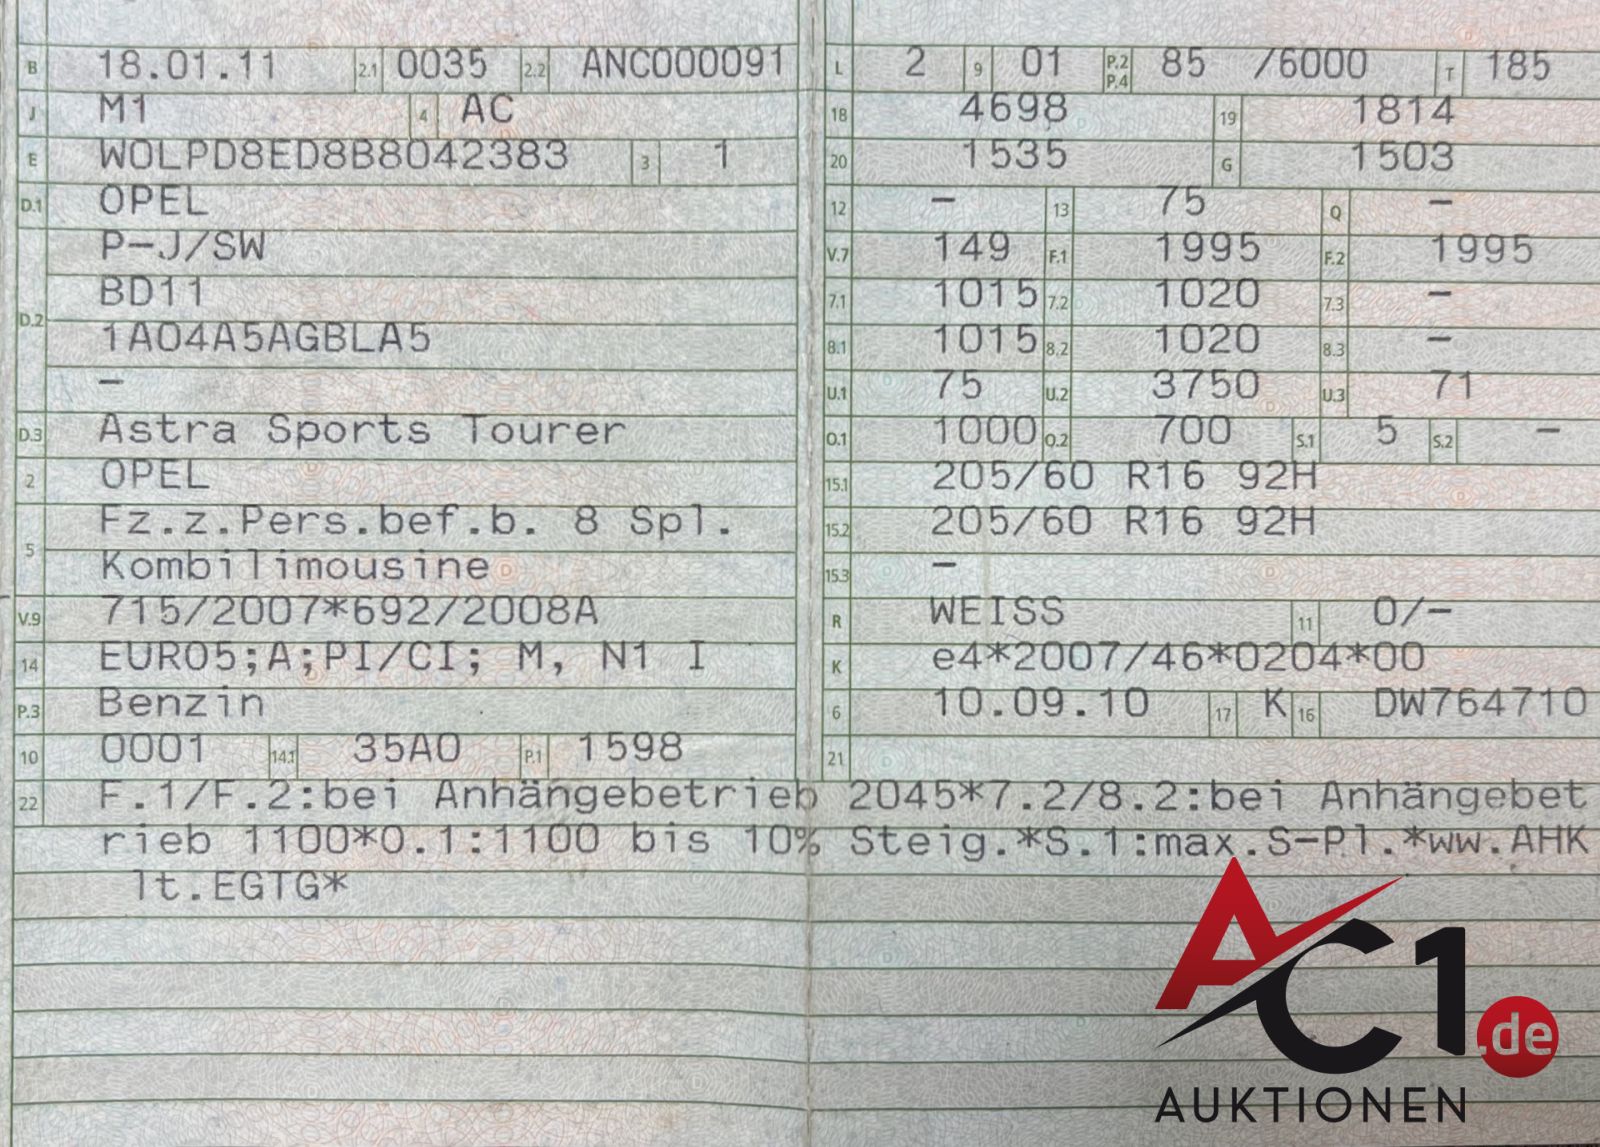 B 18.01.11 2.1 0035 2.2 ANC000091 L 2 9 01 P.2 P.4 85 /6000 T 185
J M1 4 AC 18 4698 19 1814
E WOLPD8ED8B8042383 3 1 20 1535 G 1503
D.1 OPEL 12 – 13 75 Q –
P–J/SW V.7 149 F.1 1995 F.2 1995
D.2 BD11 7.1 1015 7.2 1020 7.3 –
1A04A5AGBLA5 8.1 1015 8.2 1020 8.3 –
– U.1 75 U.2 3750 U.3 71
D.3 Astra Sports Tourer O.1 1000 O.2 700 S.1 5 S.2 –
2 OPEL 15.1 205/60 R16 92H
5 Fz.z.Pers.bef.b. 8 Spl. 15.2 205/60 R16 92H
Kombilimousine 15.3 –
V.9 715/2007*692/2008A R WEISS 11 0/–
14 EURO5;A;PI/CI; M, N1 I K e4*2007/46*0204*00
P.3 Benzin 6 10.09.10 17 K 16 DW764710
10 0001 14.1 35A0 P.1 1598 21
22 F.1/F.2:bei Anhängebetrieb 2045*7.2/8.2:bei Anhängebet
rieb 1100*O.1:1100 bis 10% Steig.*S.1:max.S–Pl.*ww.AHK
lt.EGTG*
AC1.de
AUKTIONEN